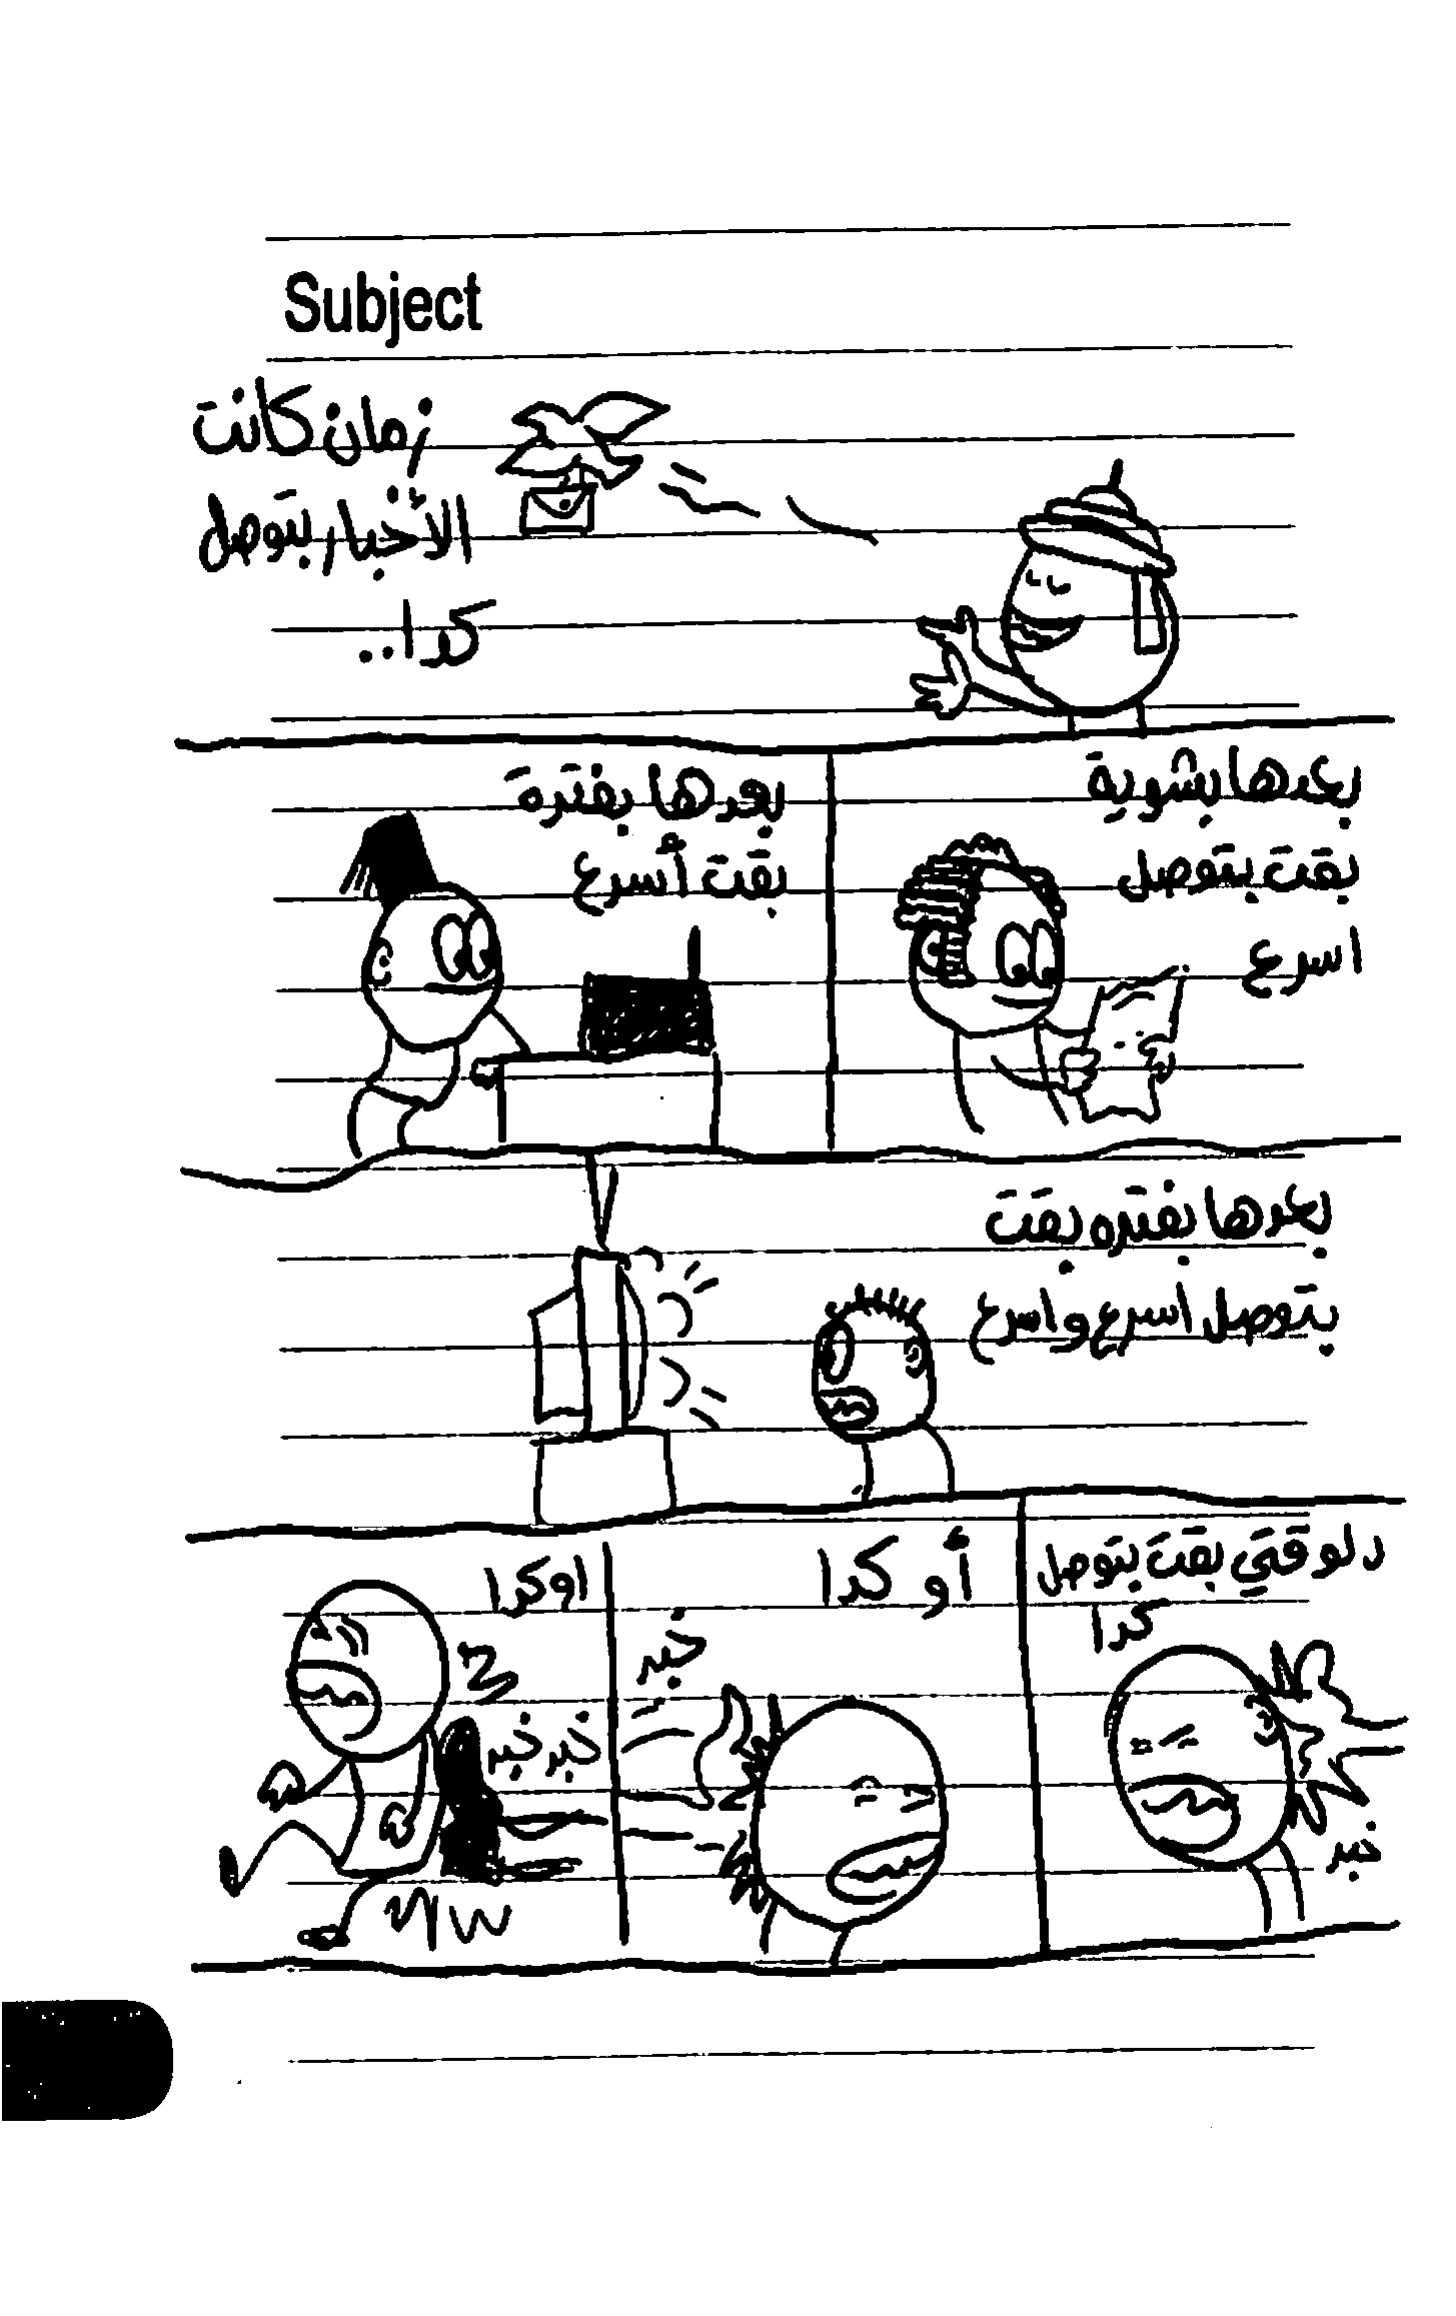 Subject
زمان كانت
الأخبار بتوصل
كدا..
بعدها بشوية
بقت بتوصل
اسرع
بعدها بفترة
بقت أسرع
بعدها بفتره بقت
بتوصل اسرع واسرع
دلوقتي بقت بتوصل
كدا
خبر
أو كدا
خبر
اوكدا
خبر خبر